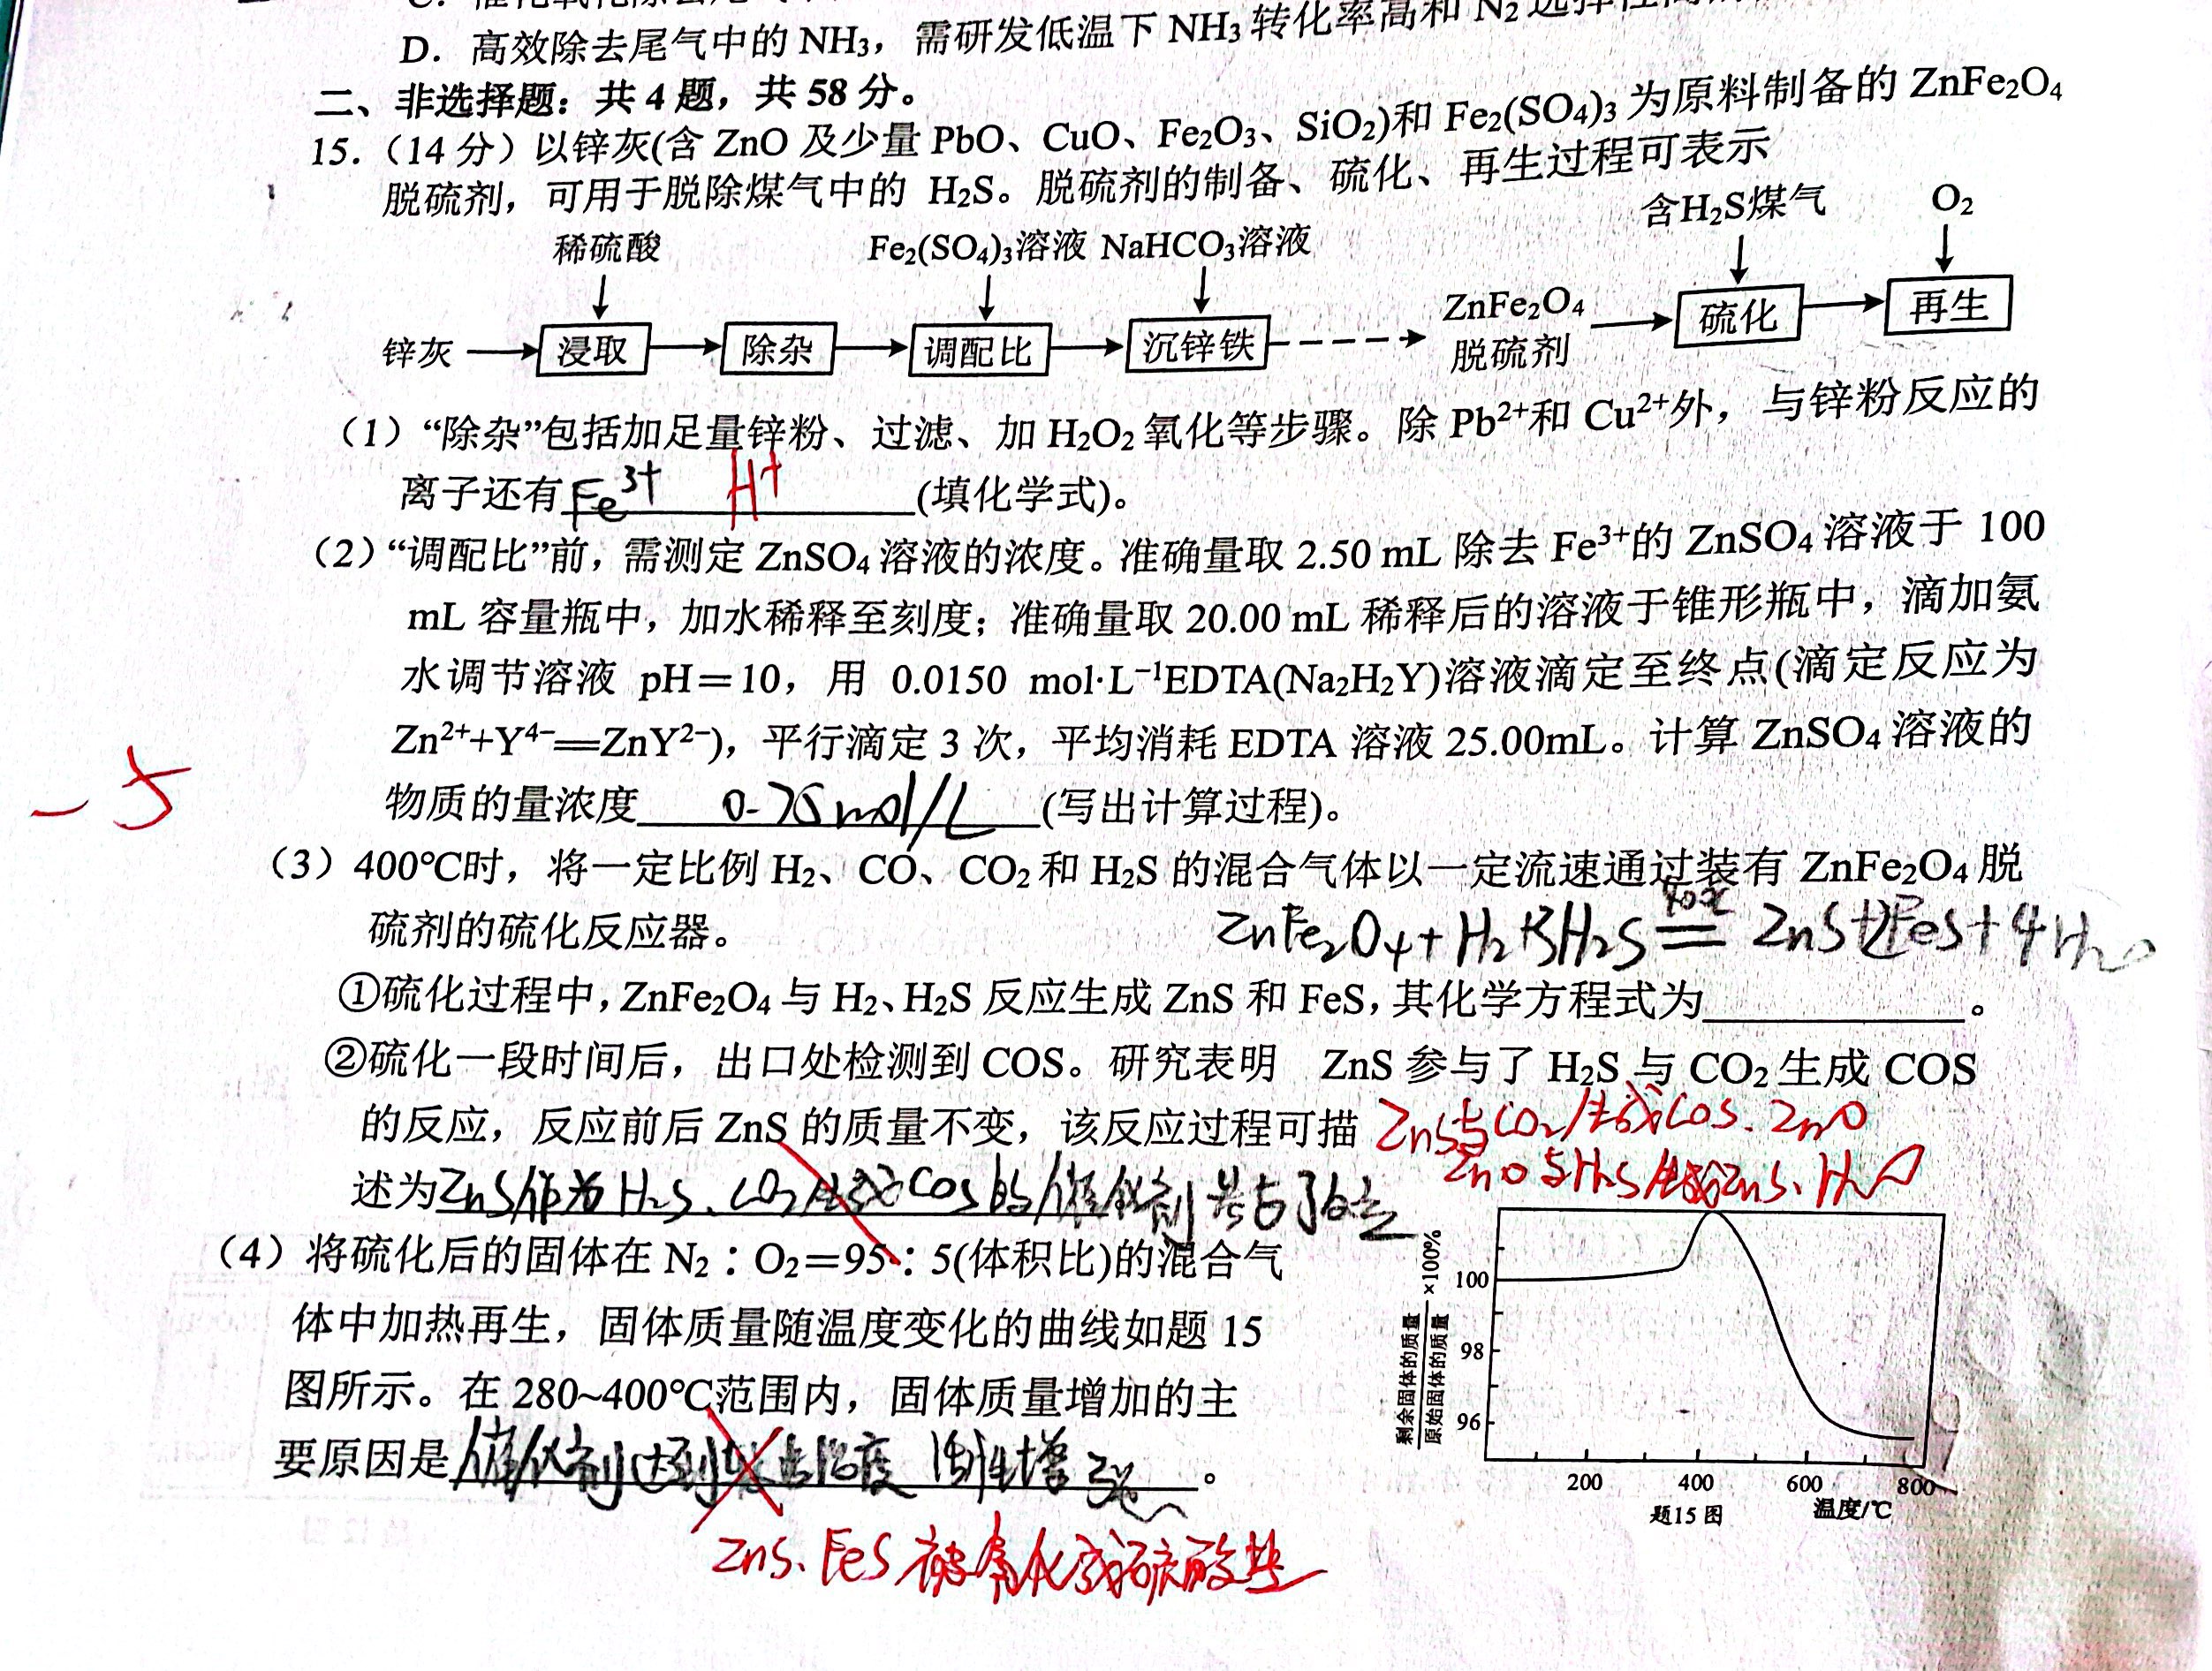 D．高效除去尾气中的 NH₃，需研发低温下 NH₃ 转化率高和 N₂
二、非选择题：共 4 题，共 58 分。
15．（14 分）以锌灰(含 ZnO 及少量 PbO、CuO、Fe₂O₃、SiO₂)和 Fe₂(SO₄)₃ 为原料制备的 ZnFe₂O₄
脱硫剂，可用于脱除煤气中的 H₂S。脱硫剂的制备、硫化、再生过程可表示
稀硫酸 Fe₂(SO₄)₃溶液 NaHCO₃溶液 含H₂S煤气 O₂
锌灰 浸取 除杂 调配比 沉锌铁 ZnFe₂O₄ 脱硫剂 硫化 再生
（1）“除杂”包括加足量锌粉、过滤、加 H₂O₂ 氧化等步骤。除 Pb²⁺和 Cu²⁺外，与锌粉反应的
离子还有 Fe³⁺ H⁺ (填化学式)。
（2）“调配比”前，需测定 ZnSO₄ 溶液的浓度。准确量取 2.50 mL 除去 Fe³⁺的 ZnSO₄ 溶液于 100
mL 容量瓶中，加水稀释至刻度；准确量取 20.00 mL 稀释后的溶液于锥形瓶中，滴加氨
水调节溶液 pH＝10，用 0.0150 mol·L⁻¹EDTA(Na₂H₂Y)溶液滴定至终点(滴定反应为
Zn²⁺+Y⁴⁻══ZnY²⁻)，平行滴定 3 次，平均消耗 EDTA 溶液 25.00mL。计算 ZnSO₄ 溶液的
-5
物质的量浓度 0.75mol/L (写出计算过程)。
（3）400℃时，将一定比例 H₂、CO、CO₂ 和 H₂S 的混合气体以一定流速通过装有 ZnFe₂O₄ 脱
硫剂的硫化反应器。
ZnFe₂O₄+H₂+3H₂S ══ ZnS+2FeS+4H₂O
①硫化过程中，ZnFe₂O₄ 与 H₂、H₂S 反应生成 ZnS 和 FeS，其化学方程式为 。
②硫化一段时间后，出口处检测到 COS。研究表明 ZnS 参与了 H₂S 与 CO₂ 生成 COS
的反应，反应前后 ZnS 的质量不变，该反应过程可描
ZnS与CO₂生成COS、ZnO
ZnO与H₂S生成ZnS、H₂O
述为ZnS作为H₂S、CO₂生成COS的催化剂参与了反应
（4）将硫化后的固体在 N₂：O₂＝95：5(体积比)的混合气
体中加热再生，固体质量随温度变化的曲线如题 15
图所示。在 280~400℃范围内，固体质量增加的主
要原因是催化剂达到 温度 活性增强。
ZnS、FeS被氧化成硫酸盐
剩余固体的质量
原始固体的质量
×100%
100
98
96
200 400 600 800
温度/℃
题15 图